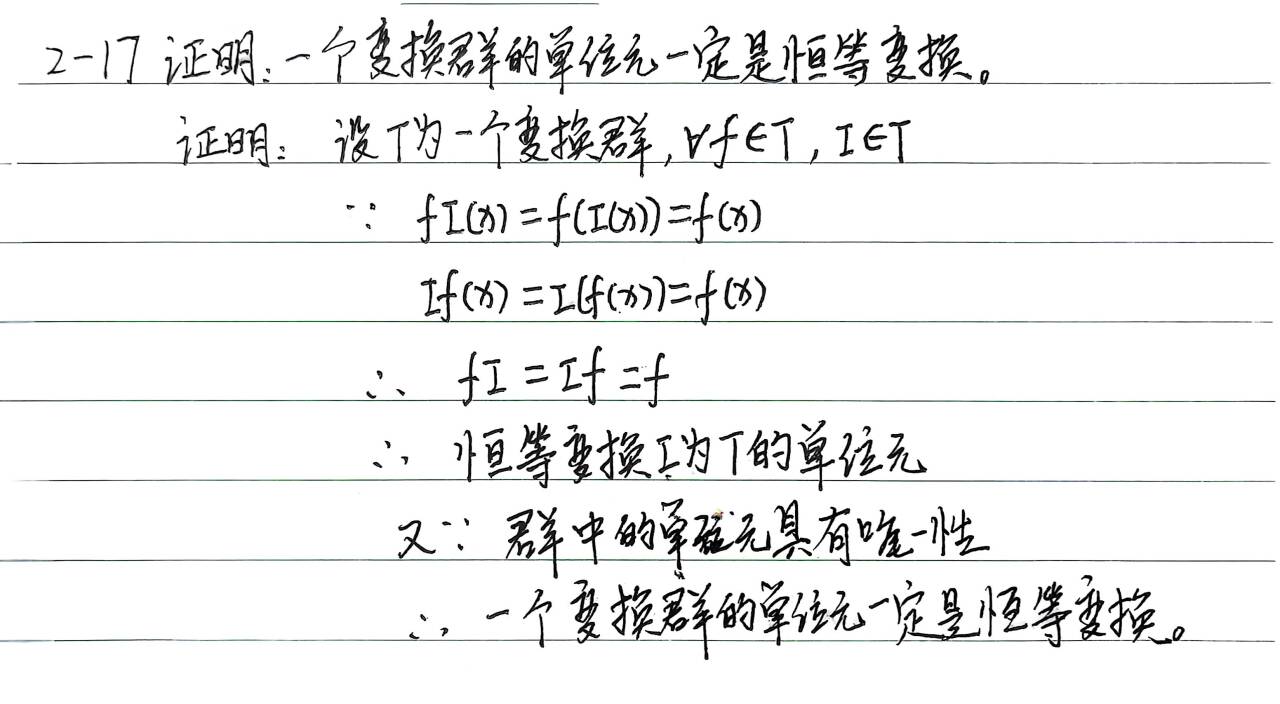 2-17 证明:一个变换群的单位元一定是恒等变换。
证明: 设T为一个变换群,∀f∈T,I∈T
∵ fI(x)=f(I(x))=f(x)
If(x)=I(f(x))=f(x)
∴ fI=If=f
∴ 恒等变换I为T的单位元
又∵ 群中的单位元具有唯一性
∴ 一个变换群的单位元一定是恒等变换。